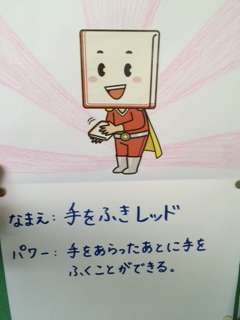 なまえ：手をふきレッド
パワー：手をあらったあとに手を
ふくことができる。